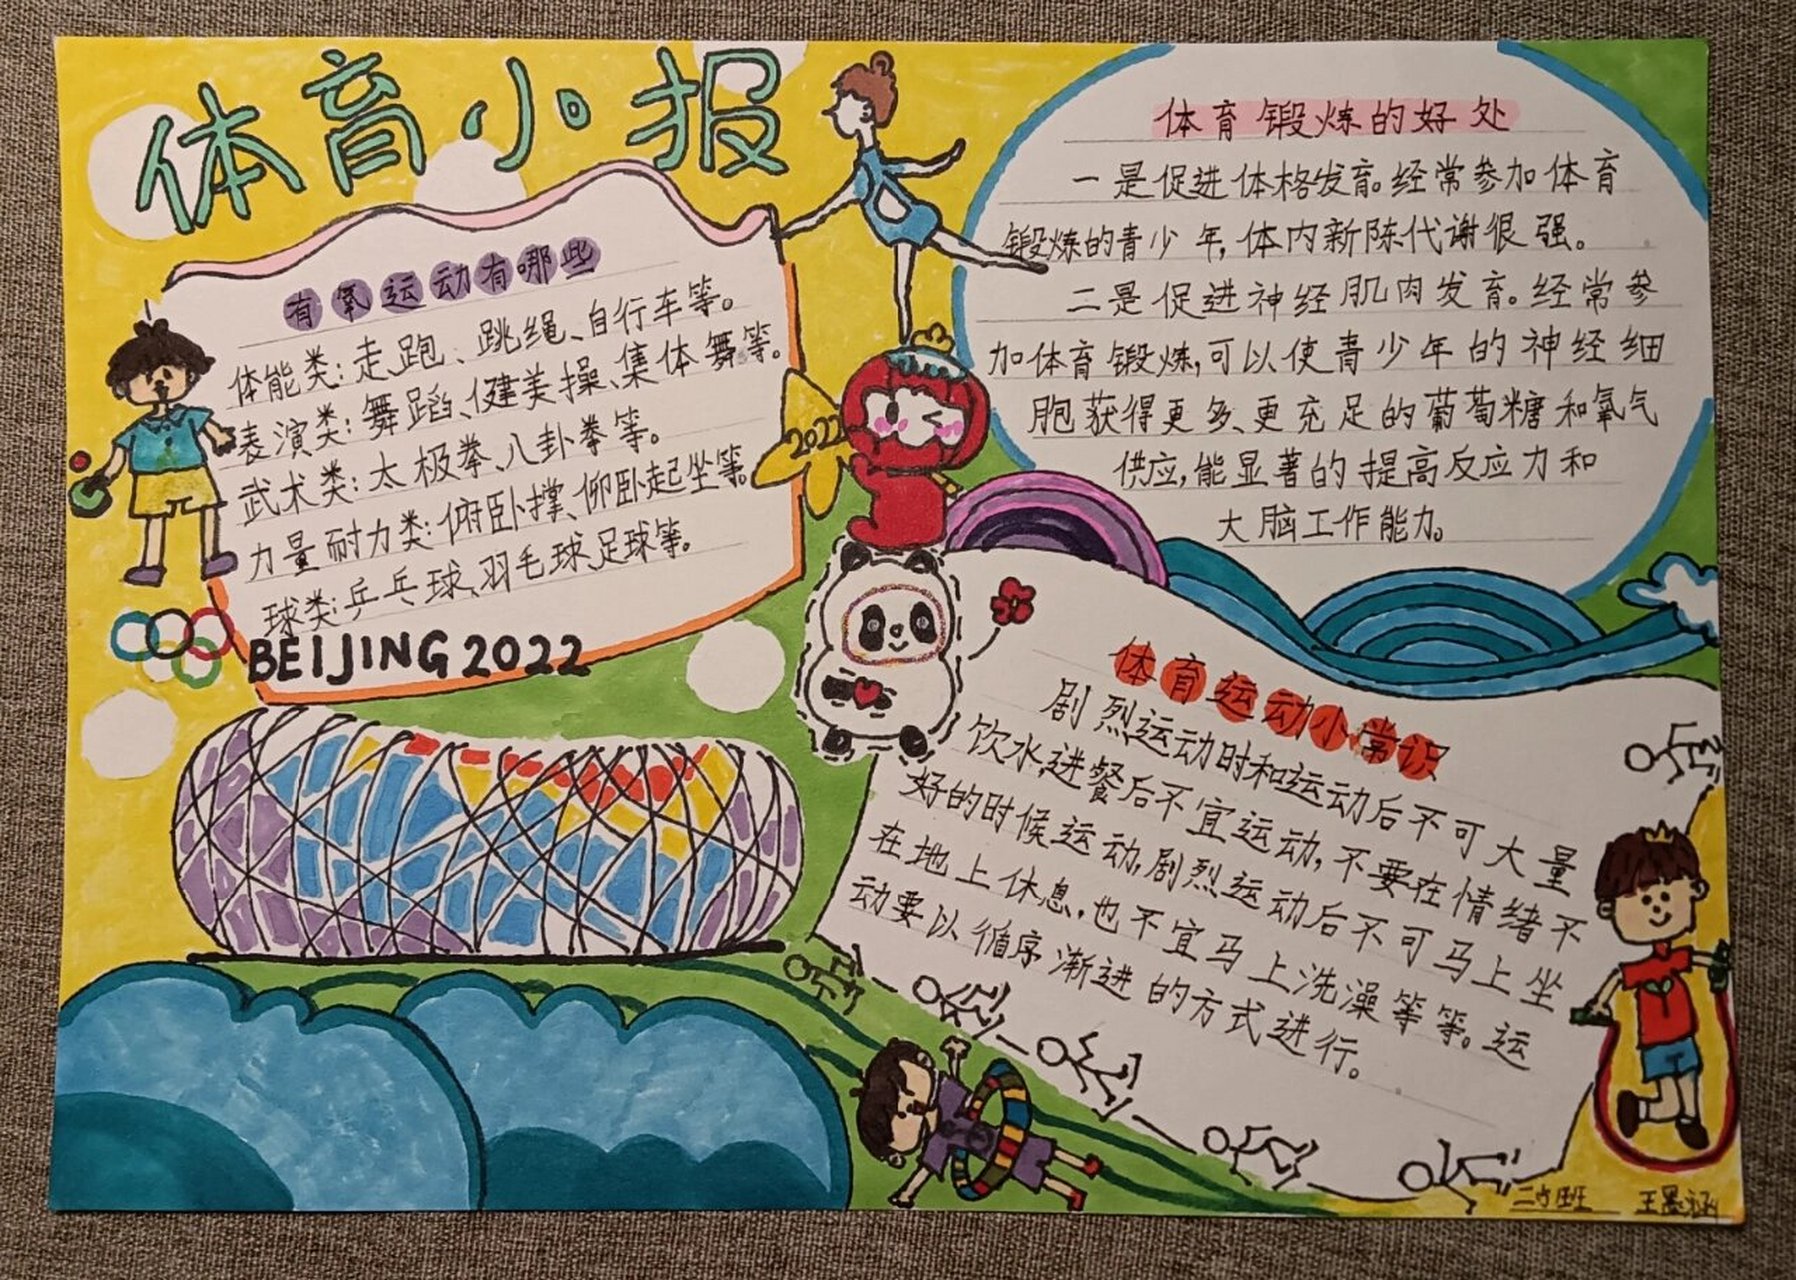 体育小报
有氧运动有哪些
体能类:走跑、跳绳、自行车等。
表演类:舞蹈、健美操、集体舞等。
武术类:太极拳、八卦拳等。
力量耐力类:俯卧撑、仰卧起坐等。
球类:乒乓球、羽毛球、足球等。
BEIJING 2022
2022
体育锻炼的好处
一是促进体格发育。经常参加体育
锻炼的青少年,体内新陈代谢很强。
二是促进神经肌肉发育。经常参
加体育锻炼,可以使青少年的神经细
胞获得更多、更充足的葡萄糖和氧气
供应,能显著的提高反应力和
大脑工作能力。
体育运动小常识
剧烈运动时和运动后不可大量
饮水,进餐后不宜运动,不要在情绪不
好的时候运动,剧烈运动后不可马上坐
在地上休息,也不宜马上洗澡等等。运
动要以循序渐进的方式进行。
王墨涵